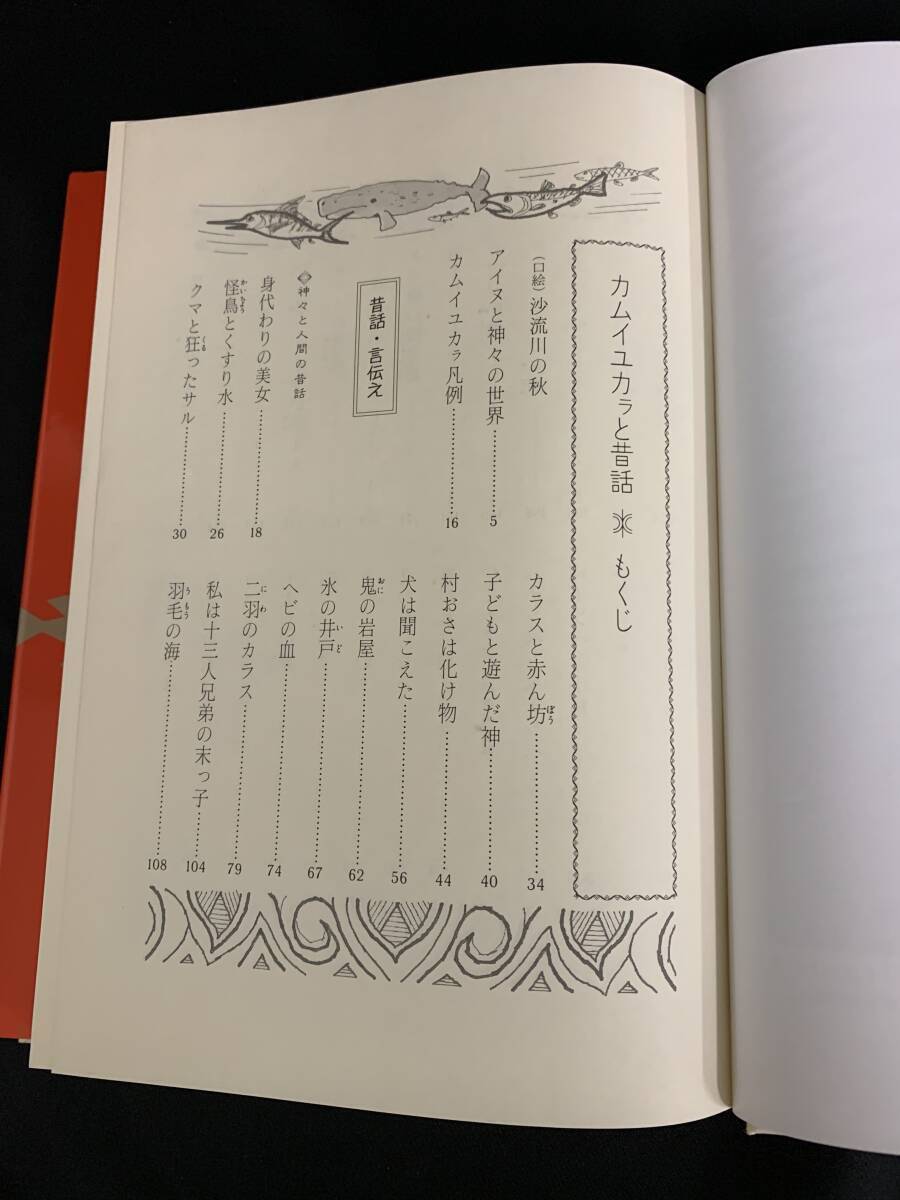 カムイユカㇻと昔話 もくじ
(口絵)沙流川の秋
アイヌと神々の世界……………5
カムイユカㇻ凡例……………16
昔話・言伝え
神々と人間の昔話
身代わりの美女……………18
怪鳥とくすり水……………26
クマと狂ったサル……………30
カラスと赤ん坊……………34
子どもと遊んだ神……………40
村おさは化け物……………44
犬は聞こえた……………56
鬼の岩屋……………62
氷の井戸……………67
ヘビの血……………74
二羽のカラス……………79
私は十三人兄弟の末っ子……………104
羽毛の海……………108